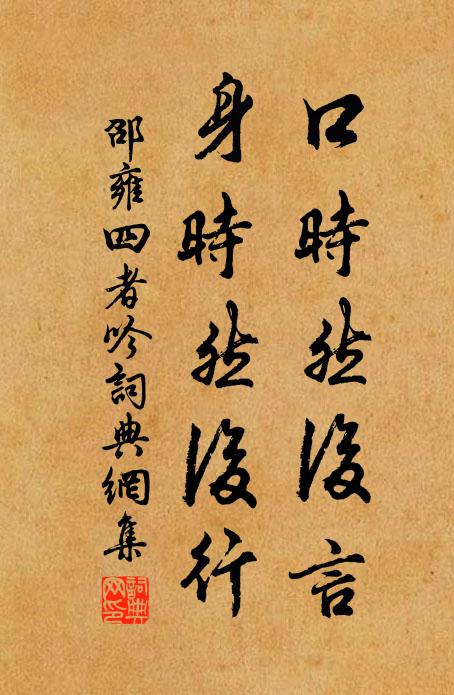 口時然後言
身時然後行
邵雍四者吟詞典網集
詞典網印